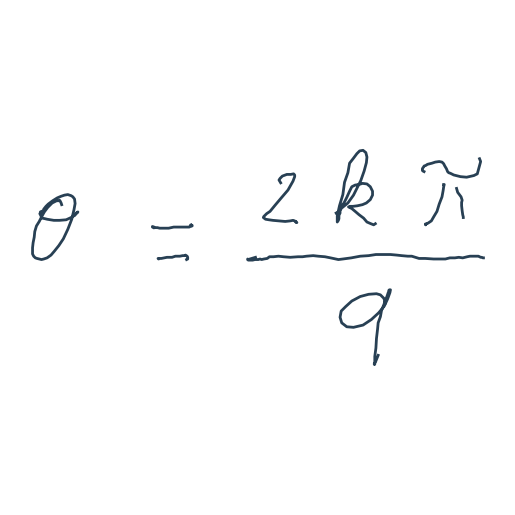 θ = \frac{2kπ}{9}